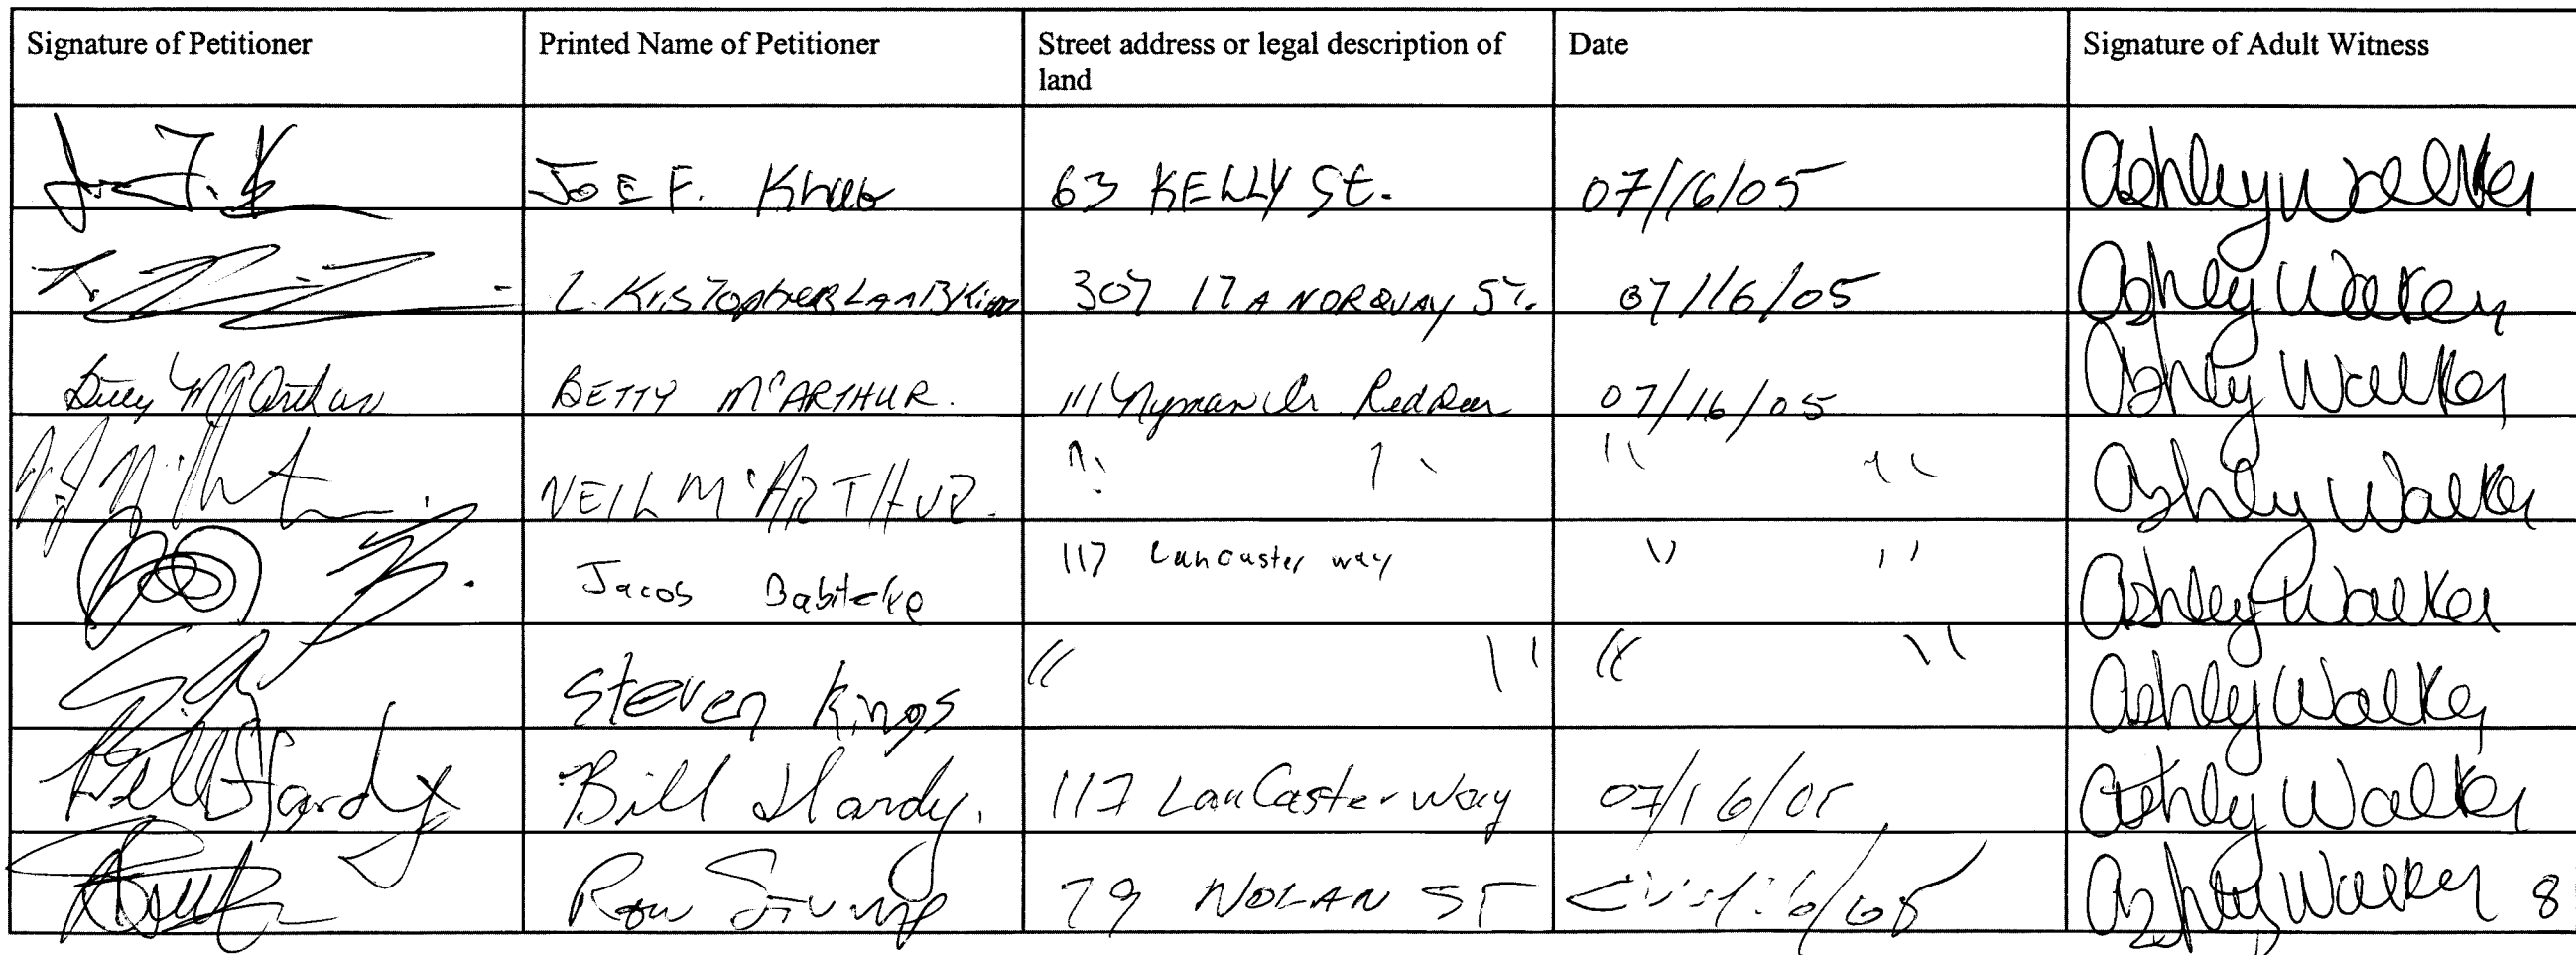 Signature of Petitioner Printed Name of Petitioner Street address or legal description of Date Signature of Adult Witness
land
JOE F. 63 KELLY St. 07/16/05 Ashley Walker
L. Kristopher 307 17A NORQUAY ST. 07/16/05 Ashley Walker
Betty McArthur BETTY McARTHUR. 111 Nyman Cr Red Deer 07/16/05 Ashley Walker
NEIL McARTHUR. " " " " Ashley Walker
Jacob 117 Lancaster way " " Ashley Walker
Steven Kings " " " " Ashley Walker
Bill Hardy Bill Hardy. 117 LanCaster Way 07/16/05 Ashley Walker
Ron 79 NOLAN ST Ashley Walker 8